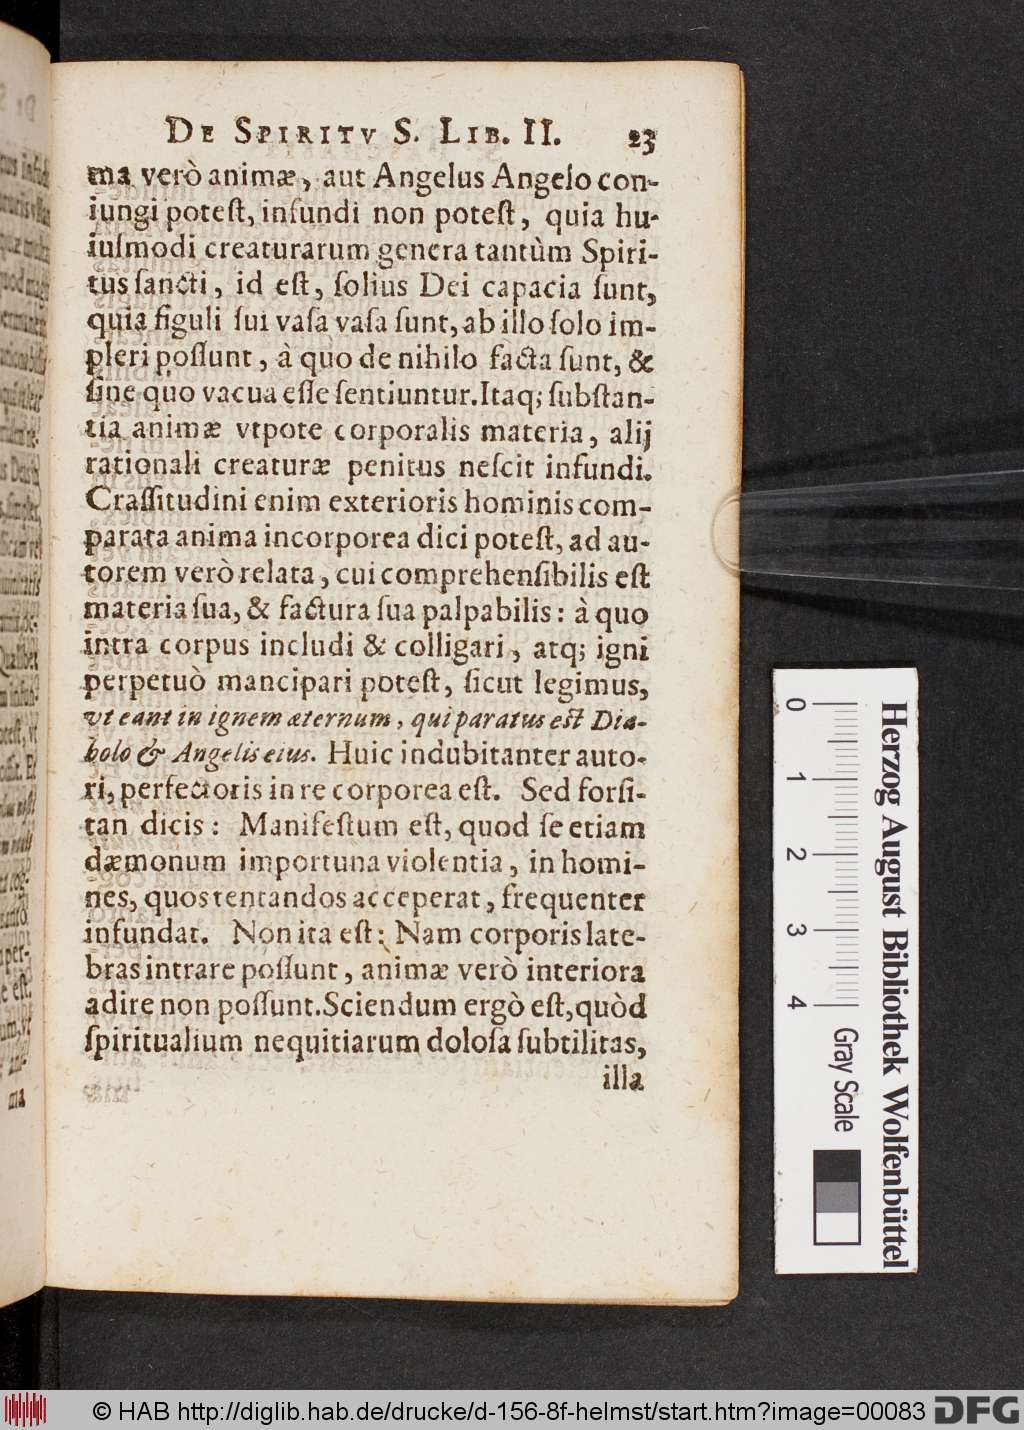 De Spiritv S. Lib. II. 23
ma verò animæ, aut Angelus Angelo con-
iungi poteſt, infundi non poteſt, quia hu-
iuſmodi creaturarum genera tantùm Spiri-
tus ſancti, id eſt, ſolius Dei capacia ſunt,
quia figuli ſui vaſa vaſa ſunt, ab illo ſolo im-
pleri poſſunt, à quo de nihilo facta ſunt, &
ſine quo vacua eſſe ſentiuntur. Itaq; ſubſtan-
tia animæ vtpote corporalis materia, alij
rationali creaturæ penitus neſcit infundi.
Craſſitudini enim exterioris hominis com-
parata anima incorporea dici poteſt, ad au-
torem verò relata, cui comprehenſibilis eſt
materia ſua, & factura ſua palpabilis: à quo
intra corpus includi & colligari, atq; igni
perpetuò mancipari poteſt, ſicut legimus,
vt eant in ignem æternum, qui paratus eſt Dia-
bolo & Angelis eius. Huic indubitanter auto-
ri, perfectoris in re corporea eſt. Sed forſi-
tan dicis: Manifeſtum eſt, quod ſe etiam
dæmonum importuna violentia, in homi-
nes, quos tentandos acceperat, frequenter
infundat. Non ita eſt: Nam corporis late-
bras intrare poſſunt, animæ verò interiora
adire non poſſunt. Sciendum ergò eſt, quòd
ſpiritualium nequitiarum doloſa ſubtilitas,
illa
ma
0 1 2 3 4
Gray Scale
Herzog August Bibliothek Wolfenbüttel
© HAB http://diglib.hab.de/drucke/d-156-8f-helmst/start.htm?image=00083
DFG